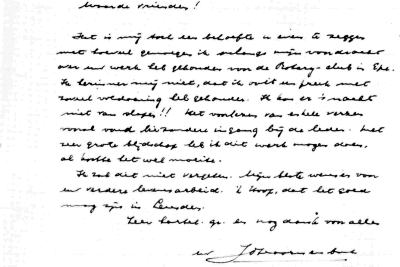 Waarde vrienden!
Het is mij toch een behoefte u even te zeggen
met hoeveel genoegen ik onlangs mijn voordracht
over uw werk heb gehouden voor de Rotary-club in Epe.
Ik herinner mij niet, dat ik ooit een preek met
zoveel voldoening heb gehouden. Ik kon er 's nachts
niet van slapen!! Het voorlezen van enkele verzen
vooral vond bijzondere ingang bij de leden. Met
zeer grote blijdschap heb ik dit werk mogen doen,
al kostte het wel moeite.
Ik zal dit niet vergeten. Mijn beste wensen voor
uw verdere levensarbeid. Ik hoop, dat het goed
mag zijn in Leusden.
Zeer hartel. gr. en nog dank voor alles
uw